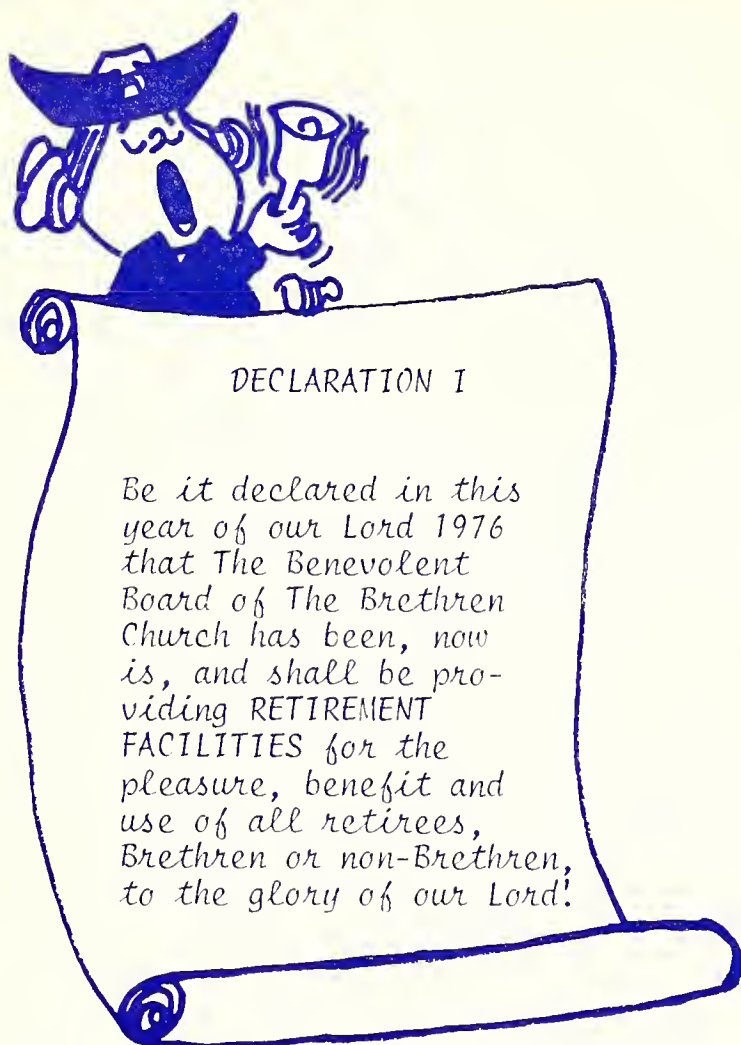 DECLARATION I
Be it declared in this
year of our Lord 1976
that The Benevolent
Board of The Brethren
Church has been, now
is, and shall be pro-
viding RETIREMENT
FACILITIES for the
pleasure, benefit and
use of all retirees,
Brethren or non-Brethren,
to the glory of our Lord!